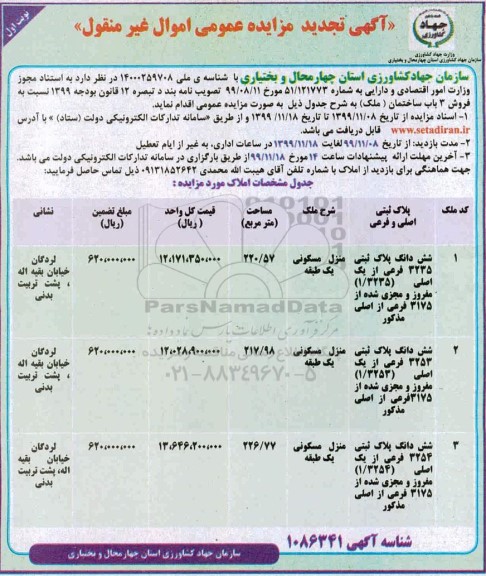 نوبت اول
«آگهی تجدید مزایده عمومی اموال غیر منقول»
جهاد کشاورزی
وزارت جهاد کشاورزی
سازمان جهاد کشاورزی استان چهارمحال و بختیاری
سازمان جهادکشاورزی استان چهارمحال و بختیاری با شناسه ی ملی ۱۴۰۰۰۲۵۹۷۰۸ در نظر دارد به استناد مجوز
وزارت امور اقتصادی و دارایی به شماره ۵۱/۱۲۱۷۷۳ مورخ ۹۹/۰۸/۱۱ تصویب نامه بند د تبصره ۱۲ قانون بودجه ۱۳۹۹ نسبت به
فروش ۳ باب ساختمان ( ملک) به شرح جدول ذیل به صورت مزایده عمومی اقدام نماید.
۱- اسناد مزایده از تاریخ ۱۳۹۹/۱۱/۰۸ تا تاریخ ۱۳۹۹/۱۱/۱۸ و از طریق «سامانه تدارکات الکترونیکی دولت (ستاد) » با آدرس
www.setadiran.ir قابل دریافت می باشد.
۲- مدت بازدید: از تاریخ ۹۹/۱۱/۰۸ لغایت ۱۳۹۹/۱۱/۱۸ در ساعات اداری، به غیر از ایام تعطیل
۳- آخرین مهلت ارائه پیشنهادات ساعت ۱۴مورخ ۹۹/۱۱/۱۸از طریق بارگزاری در سامانه تدارکات الکترونیکی دولت می باشد.
جهت هماهنگی برای بازدید از املاک با شماره تلفن آقای هیبت الله محمدی ۰۹۱۳۱۸۵۲۶۴۲ ذیل تماس حاصل فرمایید:
جدول مشخصات املاک مورد مزایده :
کد ملک پلاک ثبتی اصلی و فرعی شرح ملک مساحت (متر مربع) قیمت کل واحد ( ریال) مبلغ تضمین (ریال) نشانی
۱ شش دانگ پلاک ثبتی منزل مسکونی ۲۲۰/۵۷ ۱۲،۱۷۱،۳۵۰،۰۰۰ ۶۲۰،۰۰۰،۰۰۰ لردگان
۳۲۳۵ فرعی از یک یک طبقه خیابان بقیه اله
اصلی (۱/۳۲۳۵) ، پشت تربیت
مفروز و مجزی شده از بدنی
۳۱۷۵ فرعی از اصلی
مذکور
۲ شش دانگ پلاک ثبتی منزل مسکونی ۲۱۷/۹۸ ۱۲،۰۲۸،۹۰۰،۰۰۰ ۶۲۰،۰۰۰،۰۰۰ لردگان
۳۲۵۳ فرعی از یک یک طبقه خیابان بقیه اله
اصلی (۱/۳۲۵۳) ، پشت تربیت
مفروز و مجزی شده از بدنی
۳۱۷۵فرعی از اصلی
مذکور
۳ شش دانگ پلاک ثبتی منزل مسکونی ۲۲۶/۷۷ ۱۳،۶۴۶،۲۰۰،۰۰۰ ۶۲۰،۰۰۰،۰۰۰ لردگان
۳۲۵۴ فرعی از یک یک طبقه خیابان بقیه
اصلی (۱/۳۲۵۴) اله، پشت تربیت
مفروز و مجزی شده از بدنی
۳۱۷۵ فرعی از اصلی
مذکور
ParsNamadData
۰۲۱-۸۸۳۴۹۶۷۰-۵
شناسه آگهی ۱۰۸۶۳۴۱
سازمان جهاد کشاورزی استان چهارمحال و بختیاری